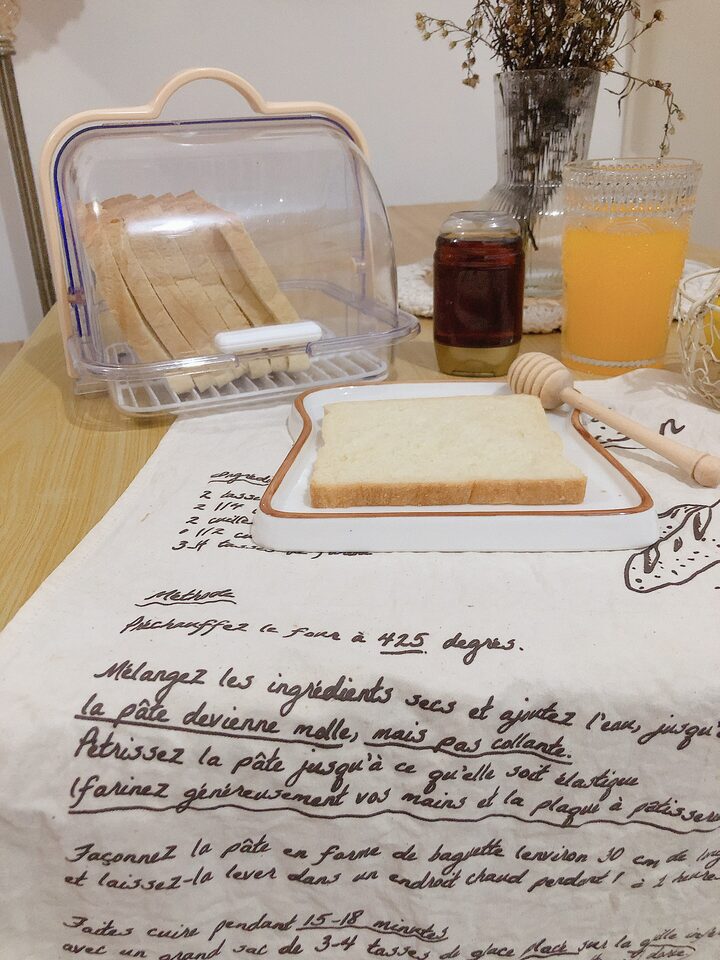 2
2 1/4
2
1/2
3-4 tasses
Méthode
Préchauffez le four à 425 degrés.
Mélangez les ingrédients secs et ajoutez l'eau, jusqu'à
la pâte devienne molle, mais pas collante.
Pétrissez la pâte jusqu'à ce qu'elle soit élastique
(farinez généreusement vos mains et la plaque à pâtisserie
Façonnez la pâte en forme de baguette (environ 30 cm de
et laissez-la lever dans un endroit chaud pendant 1 à 2 heures
Faites cuire pendant 15-18 minutes
avec un grand sac de 3-4 tasses de glace placé sur la grille